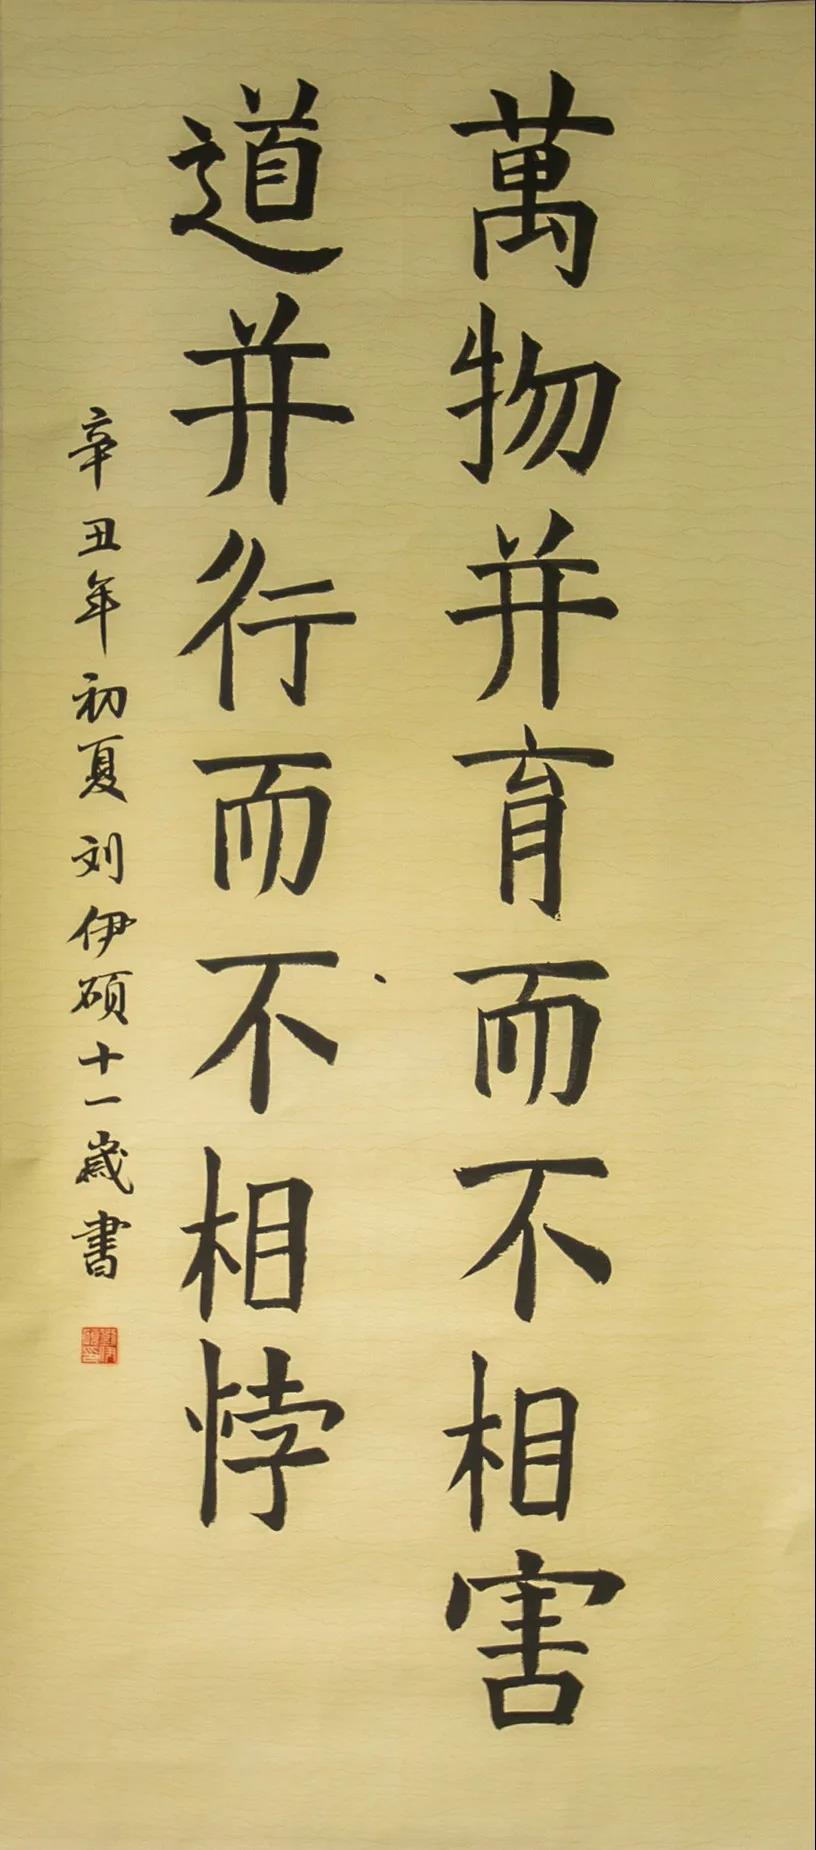 萬物并育而不相害
道并行而不相悖
辛丑年初夏刘伊硕十一歲書